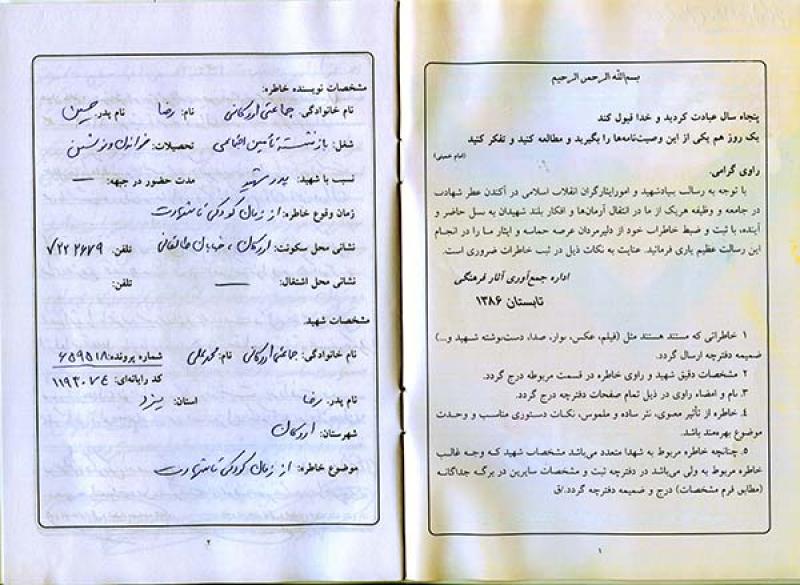 بسم‌الله الرحمن الرحیم
پنجاه سال عبادت کردید و خدا قبول کند
یک روز هم یکی از این وصیت‌نامه‌ها را بگیرید و مطالعه کنید و تفکر کنید
(امام خمینی)
راوی گرامی:
با توجه به رسالت بنیادشهید و امورایثارگران انقلاب اسلامی در آکندن عطر شهادت
در جامعه و وظیفه هریک از ما در انتقال آرمان‌ها و افکار بلند شهیدان به نسل حاضر و
آینده، با ثبت و ضبط خاطرات خود از دلیرمردان عرصه حماسه و ایثار ما را در انجام
این رسالت عظیم یاری فرمائید. عنایت به نکات ذیل در ثبت خاطرات ضروری است.
اداره جمع‌آوری آثار فرهنگی
تابستان ۱۳۸۶
۱ خاطراتی که مستند هستند مثل (فیلم، عکس، نوار، صدا، دست‌نوشته شهید و...)
ضمیمه دفترچه ارسال گردد.
۲ مشخصات دقیق شهید و راوی خاطره در قسمت مربوطه درج گردد.
۳. نام و امضاء راوی در ذیل تمام صفحات دفترچه درج گردد.
۴. خاطره از تأثیر معنوی، نثر ساده و ملموس، نکات دستوری مناسب و وحدت
موضوع بهره‌مند باشد.
۵ چنانچه خاطره مربوط به شهدا متعدد می‌باشد مشخصات شهید که وجه غالب
خاطره مربوط به ولی می‌باشد در دفترچه ثبت و مشخصات سایرین در برگه جداگانه
(مطابق فرم مشخصات) درج و ضمیمه دفترچه گردد./ق
۱
مشخصات نویسنده خاطره:
نام خانوادگی: جماعتی اردکانی نام: رضا نام پدر: حسین
شغل: بازنشسته تأمین اجتماعی تحصیلات: خواندن و نوشتن
نسبت با شهید: پدر شهید مدت حضور در جبهه: —
زمان وقوع خاطره: از زمان کودکی تا شهادت
نشانی محل سکونت: اردکان، خیابان طالقانی تلفن: ۷۲۲۲۶۷۹
نشانی محل اشتغال: — تلفن:
مشخصات شهید
نام خانوادگی: جماعتی اردکانی نام: محمدعلی شماره پرونده: ۶۵۹۵۱۸
کد رایانه‌ای: ۱۱۹۳۰۷۴
نام پدر: رضا استان: یزد
شهرستان: اردکان
موضوع خاطره: از زمان کودکی تا شهادت
۲